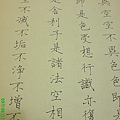 空不異色色即是
是色受想行識亦復
是舍利子是諸法空相
不滅不垢不淨不增